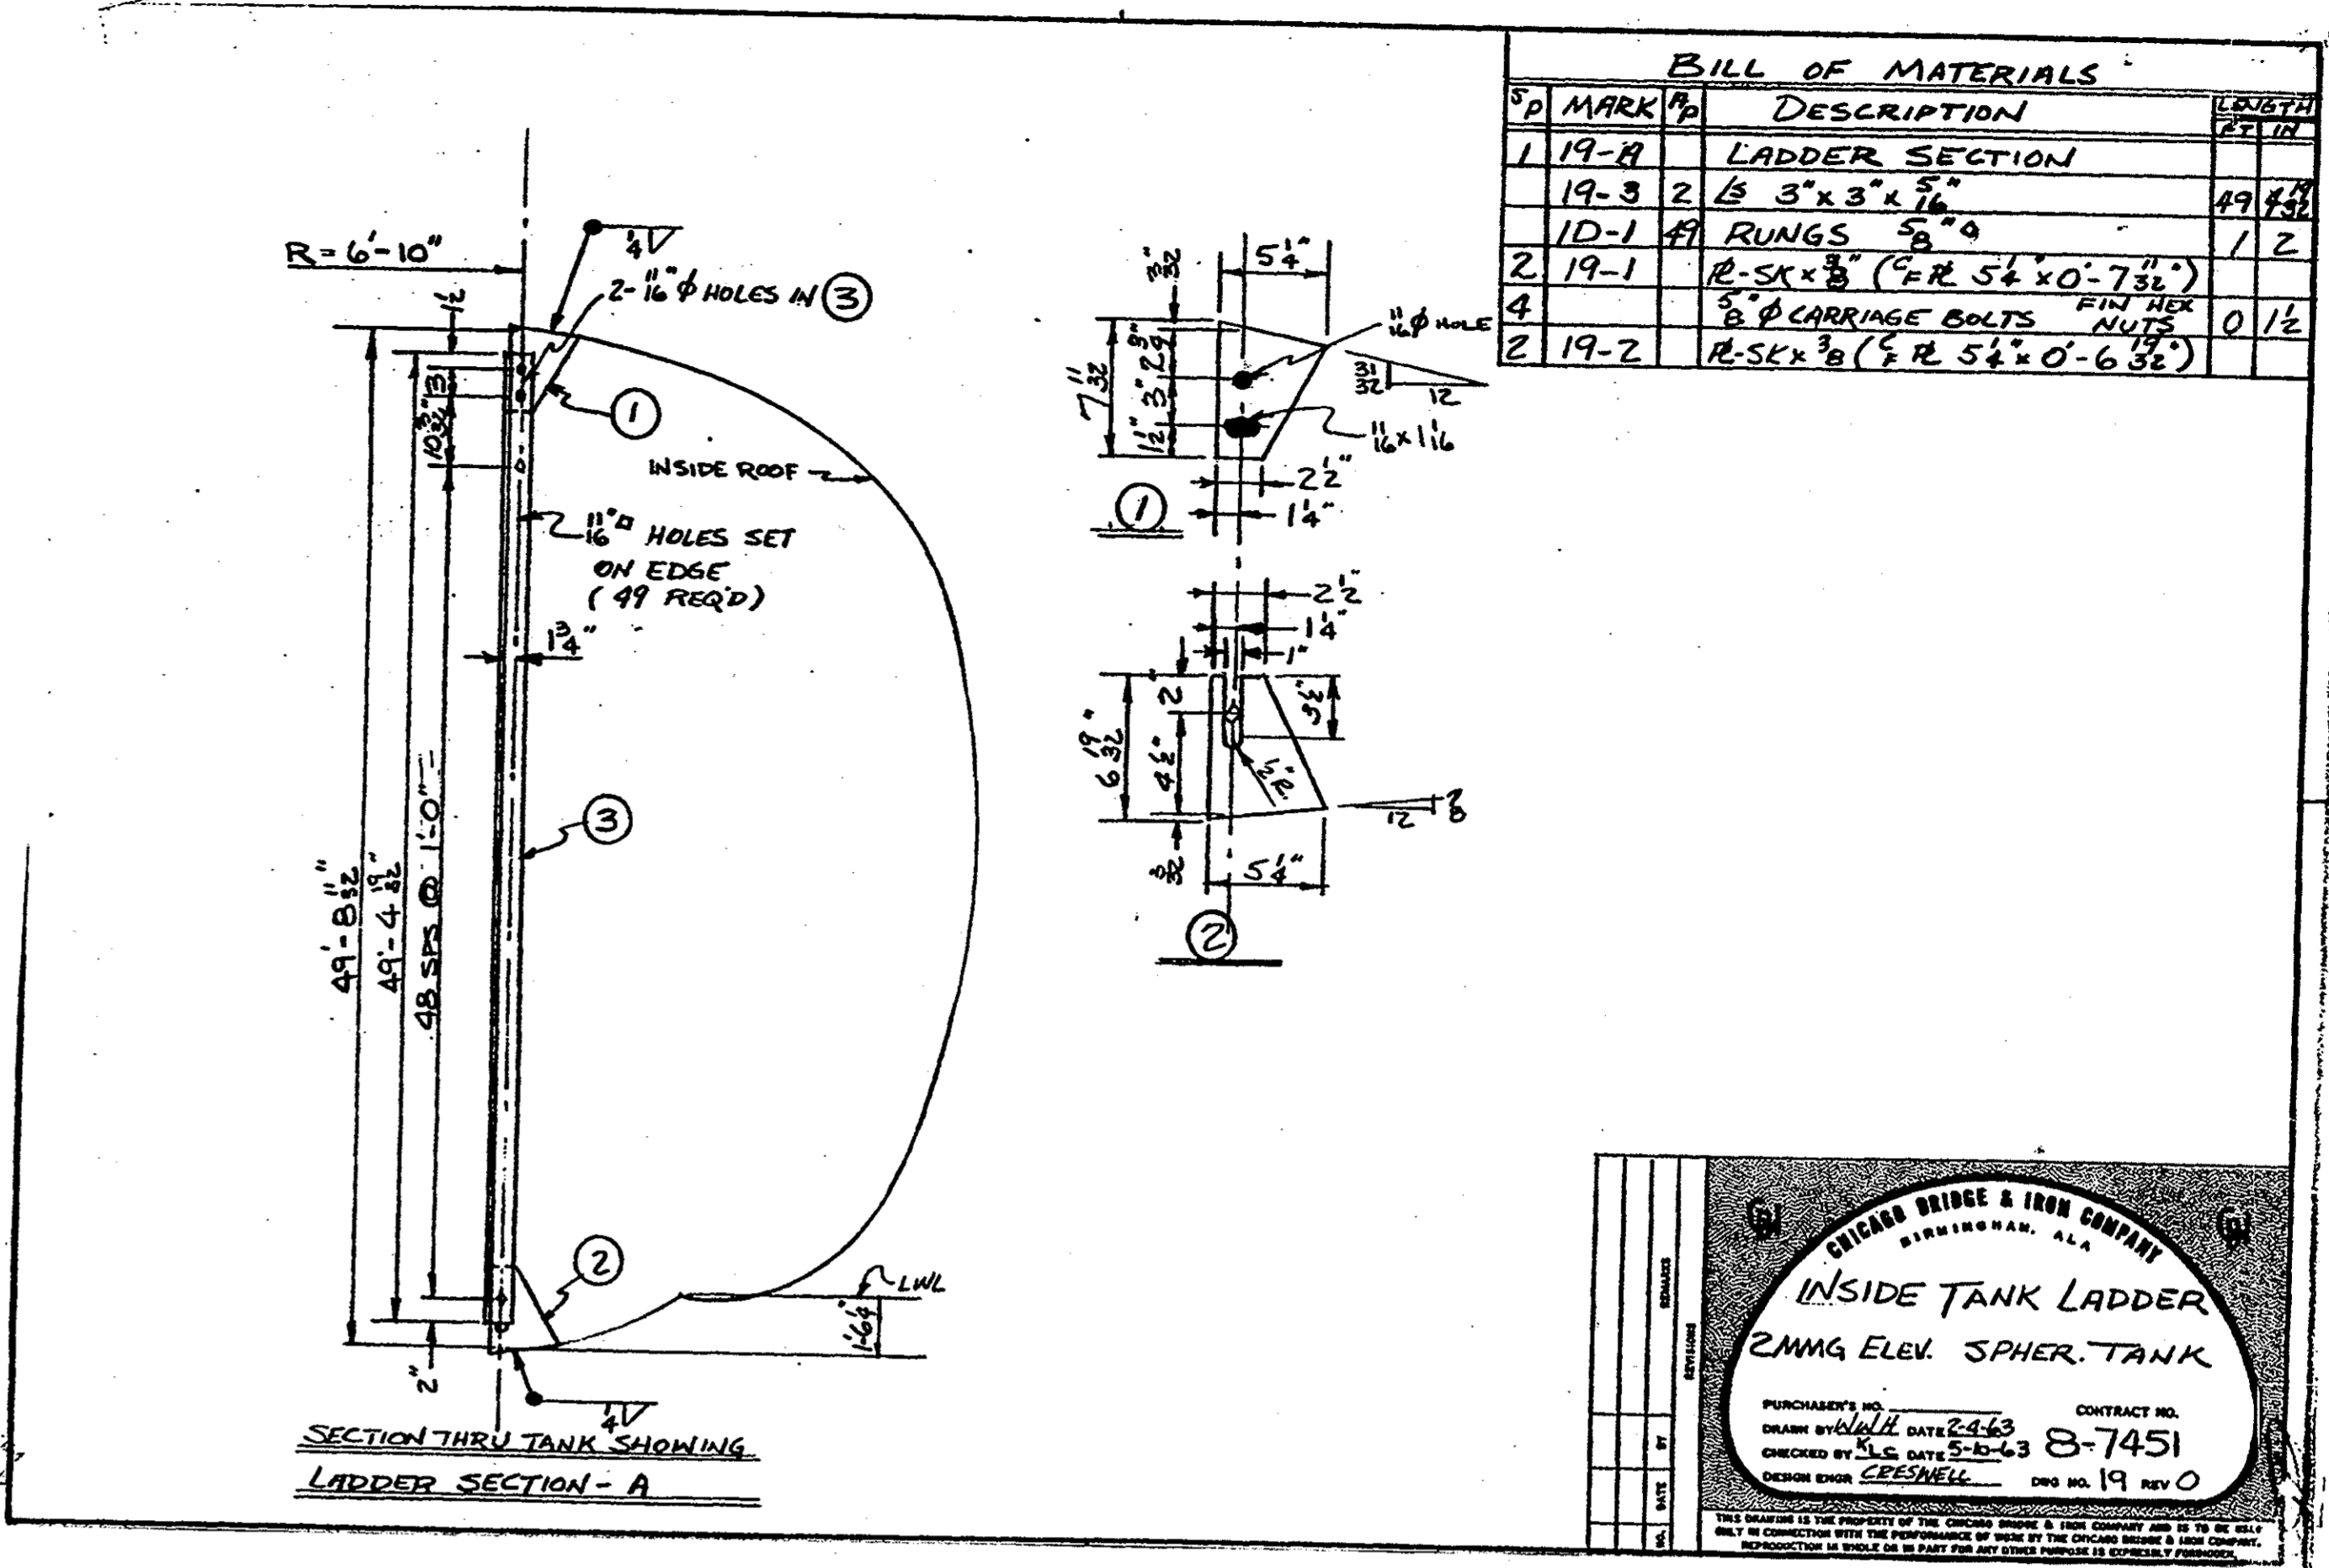 BILL OF MATERIALS
SP MARK AP DESCRIPTION LENGTH
FT IN
1 19-A LADDER SECTION
19-3 2 Ls 3" x 3" x 5/16" 49 4 19/32
1D-1 49 RUNGS 5/8" 1 2
2 19-1 PL-SK x 3/8" (CF PL 5 1/4" x 0'-7 11/32")
4 5/8" ϕ CARRIAGE BOLTS FIN HEX NUTS 0 1 1/2
2 19-2 PL-SK x 3/8 (CF PL 5 1/4" x 0'-6 19/32")
R = 6'-10"
1/4
2-11/16" ϕ HOLES IN 3
1 1/2
3
10 3/32"
1
INSIDE ROOF
11/16" HOLES SET
ON EDGE
(49 REQ'D)
1 3/4"
3
49'-8 11/32"
49'-4 19/32"
48 SPS @ 1'-0"
2
LWL
1'-6 1/4"
2"
1/4
SECTION THRU TANK SHOWING
LADDER SECTION - A
5 1/4"
3/32"
11/16 ϕ HOLE
7 11/32
2 3/4"
3"
1 1/2"
31/32
12
11/16 x 1 1/16
2 1/2"
1 1/4"
1
2 1/2"
1 1/4"
1"
2"
3 1/2"
6 19/32"
4 1/2"
1/2" R.
12
7/8
3/32
5 1/4"
2
CHICAGO BRIDGE & IRON COMPANY
BIRMINGHAM, ALA
INSIDE TANK LADDER
2MMG ELEV. SPHER. TANK
PURCHASER'S NO.
CONTRACT NO.
DRAWN BY WWH DATE 2-4-63
8-7451
CHECKED BY KLC DATE 5-10-63
DESIGN ENGR CRESWELL DWG NO. 19 REV 0
REMARKS
REVISIONS
NO. DATE BY
THIS DRAWING IS THE PROPERTY OF THE CHICAGO BRIDGE & IRON COMPANY AND IS TO BE USED
ONLY IN CONNECTION WITH THE PERFORMANCE OF WORK BY THE CHICAGO BRIDGE & IRON COMPANY.
REPRODUCTION IN WHOLE OR IN PART FOR ANY OTHER PURPOSE IS EXPRESSLY FORBIDDEN.